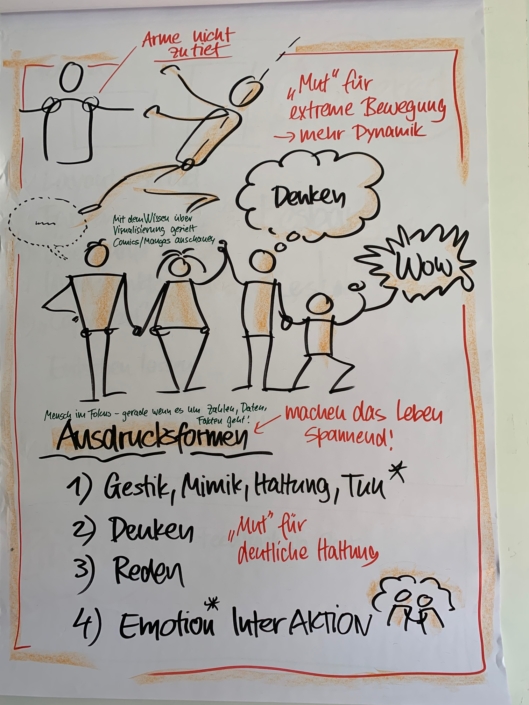 Arme nicht
zu tief
„Mut" für
extreme Bewegung
→ mehr Dynamik
Denken
Mit dem Wissen über
Visualisierung gezielt
Comics/Mangas anschauen
Wow
Mensch im Fokus - gerade wenn es um Zahlen, Daten,
Fakten geht!
Ausdrucksformen
machen das Leben
spannend!
1) Gestik, Mimik, Haltung, Tun*
2) Denken
„Mut" für
deutliche Haltung
3) Reden
4) Emotion* InterAKTION